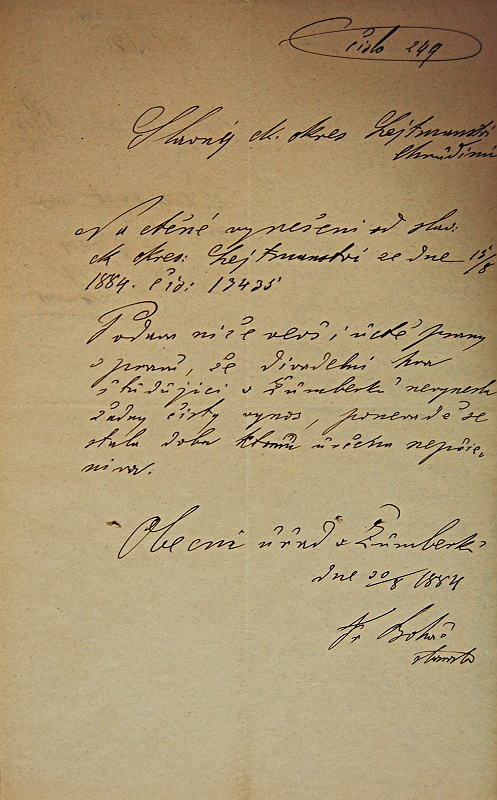 číslo 249
Slavný ck. okres Hejtmanství
Chrudimi
Na ctěné vynešení od slav:
ck okres: Hejtmanství ze dne 15/8
1884. čís: 13435
Podana níže velví úctě
spraví, že divadelní hra
študující v Žumberku nevynesla
žádny čistý vynos, poněvadž se
stala doba k tomu nepříz-
niva.
Obecní úřad v Žumberku
dne 20/8 1884
Fr Boháč
starosta